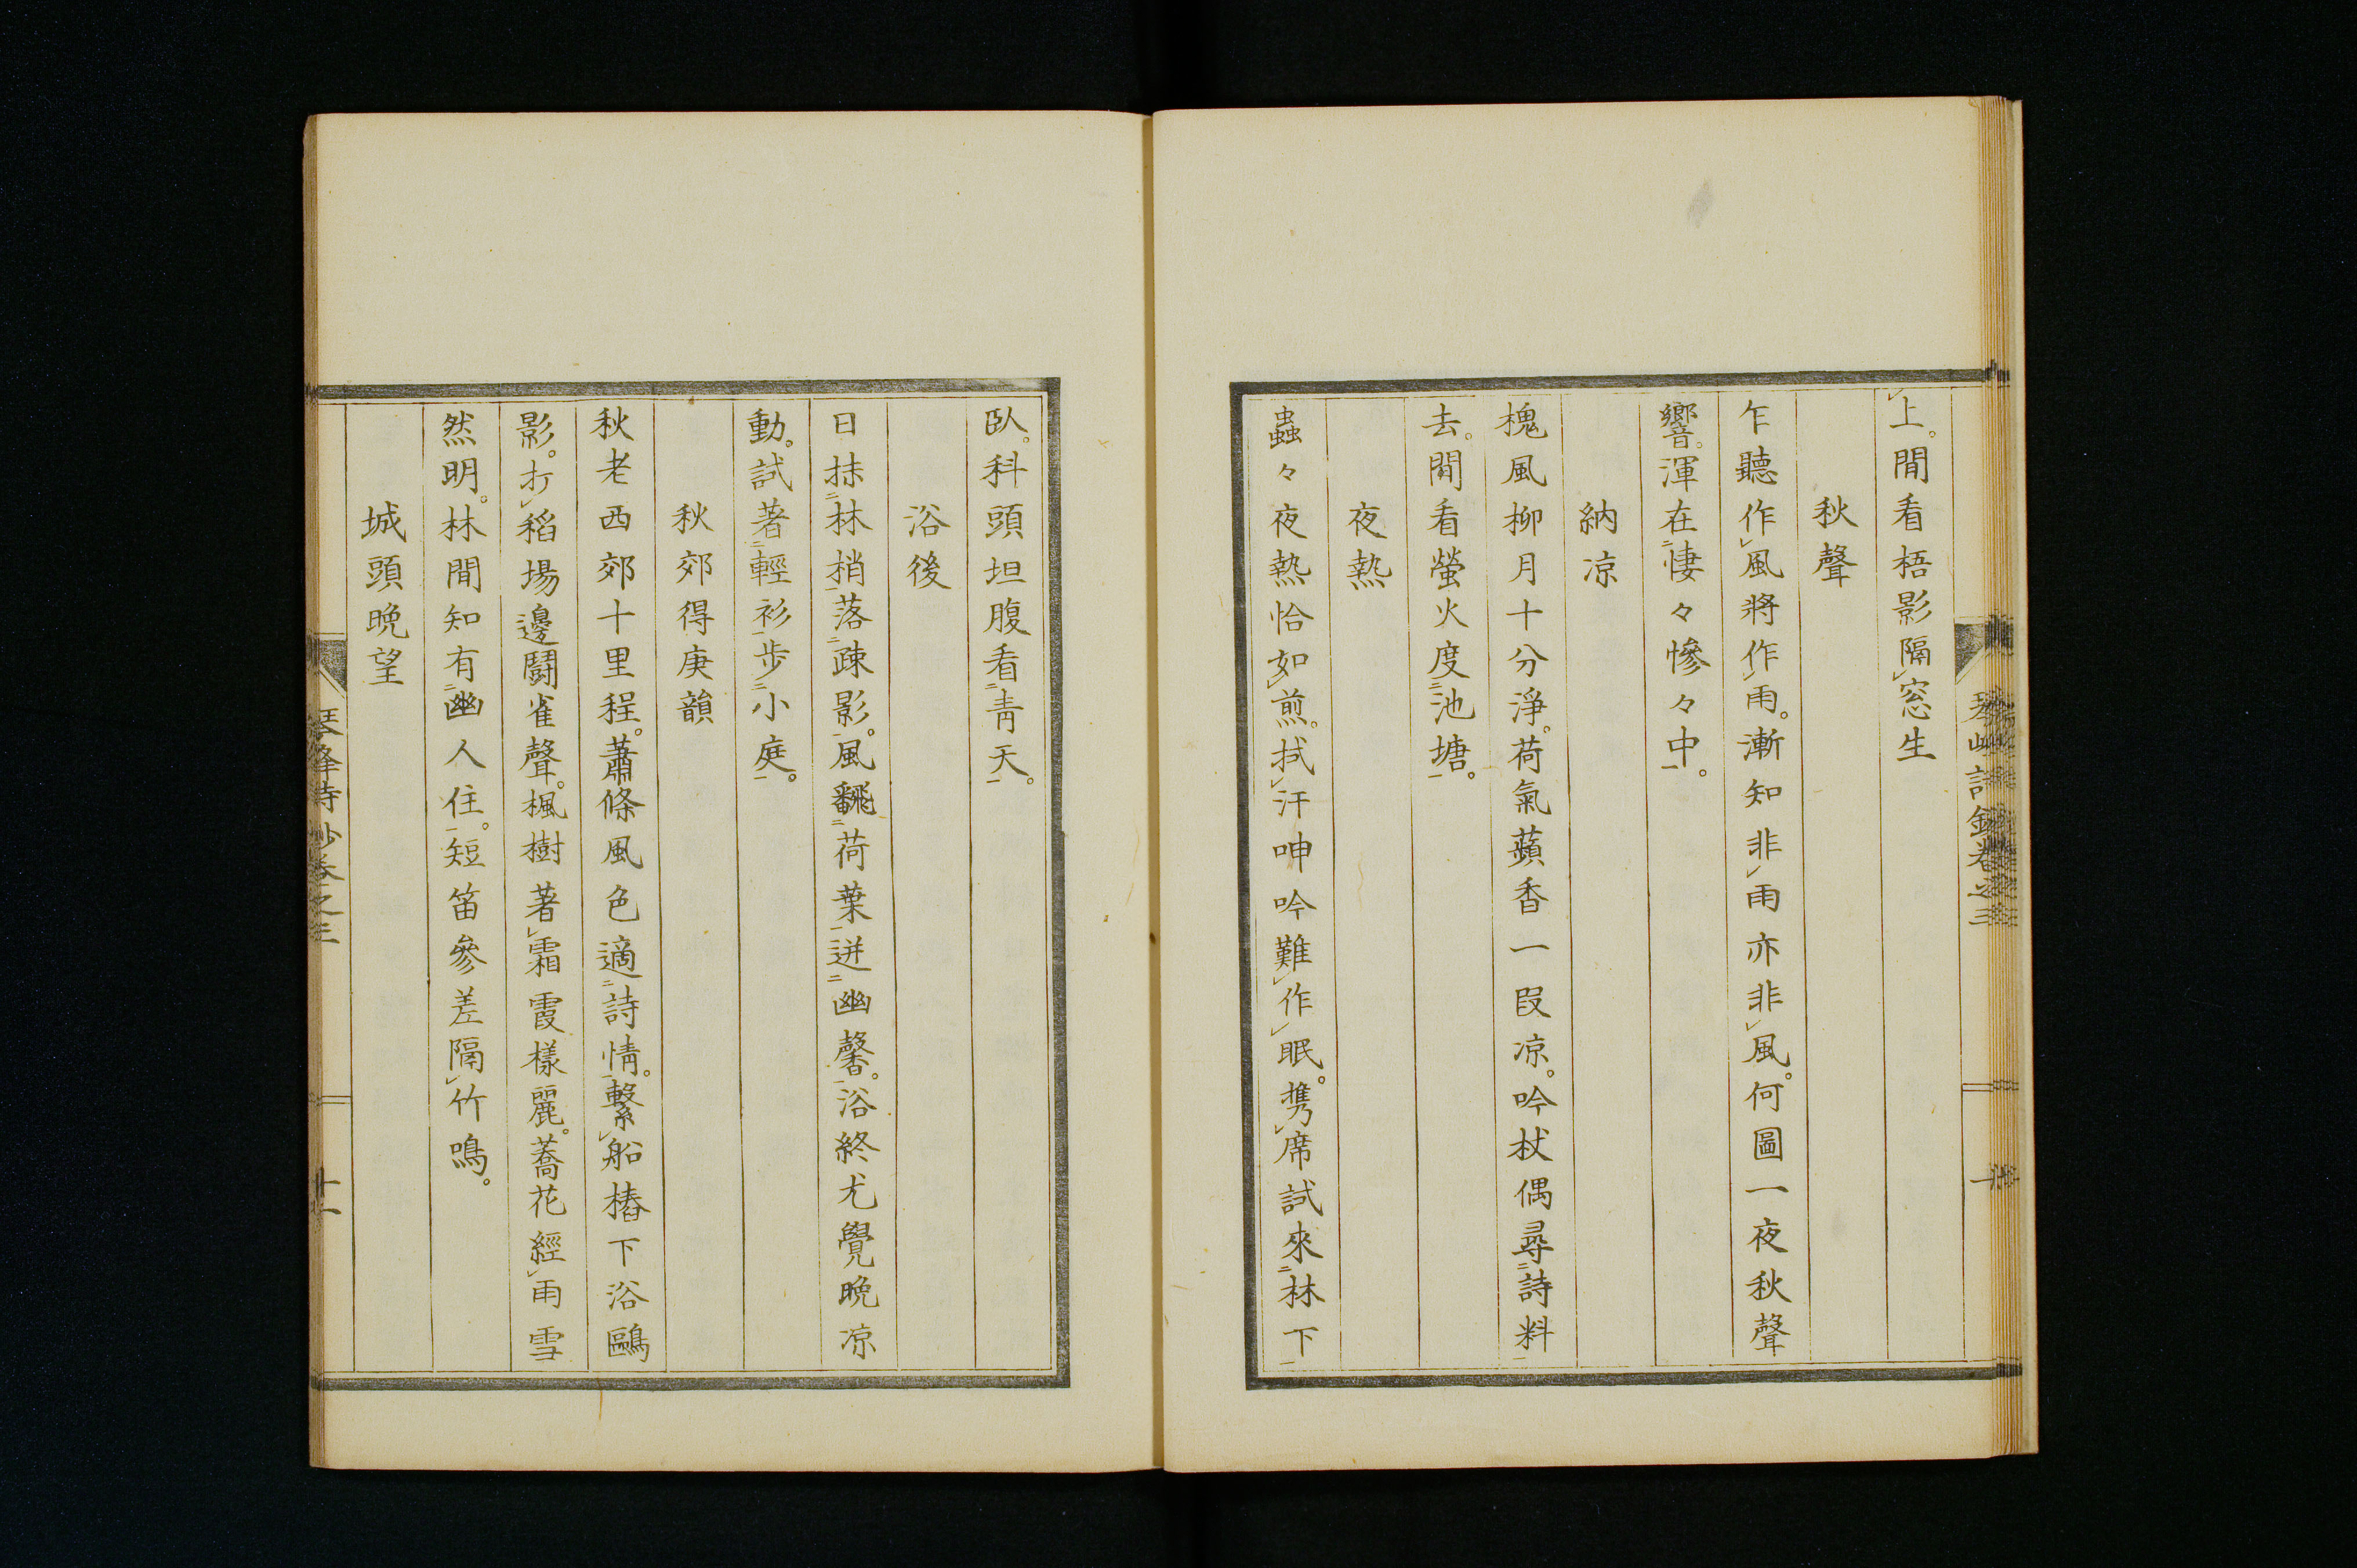 上。閒看梧影隔㆑窓生
秋聲
乍聽作㆑風將作㆑雨。漸知非㆑雨亦非㆑風。何圖一夜秋聲
響。渾在㆓悽々慘々中㆒。
納凉
槐風柳月十分淨。荷氣蘋香一段凉。吟杖偶尋㆓詩料㆒
去。閒看螢火度㆓池塘㆒。
夜熱
蟲々夜熱恰如㆑煎。拭㆑汗呻吟難㆑作㆑眠。携㆑席試來㆓林下㆒
臥。科頭坦腹看㆓靑天㆒。
浴後
日抹㆓林梢㆒落㆓疎影㆒。風飜㆓荷葉㆒迸㆓幽馨㆒。浴終尤覺晩凉
動。試著㆓輕衫㆒步㆓小庭㆒。
秋郊得庚韻
秋老西郊十里程。蕭條風色適㆓詩情㆒。繫㆑船樁下浴鷗
影。打㆑稻場邊鬪雀聲。楓樹著㆑霜霞樣麗。蕎花經㆑雨雪
然明。林間知有㆓幽人住㆒。短笛參差隔㆑竹鳴。
城頭晩望
琴峰詩鈔卷之三
十一